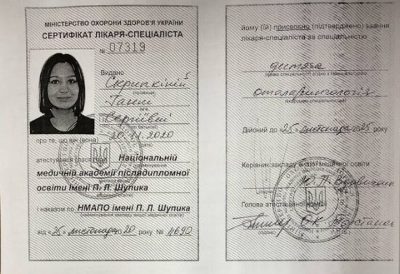 МІНІСТЕРСТВО ОХОРОНИ ЗДОРОВ'Я УКРАЇНИ
СЕРТИФІКАТ ЛІКАРЯ-СПЕЦІАЛІСТА
№ 07319
Видано
Скрипкіній
Ганні
Сергіївні
20.11.2020
про те, що він (вона)
атестувався (лася) Національній
медичній академії післядипломної
освіти імені П. Л. Шупика
і наказом по НМАПО імені П. Л. Шупика
від 25 листопада 20 року № 4692
йому (їй) присвоєно (підтверджено) звання
лікаря-спеціаліста за спеціальністю
дитяча
отоларингологія
Дійсний до 25 листопада 25 року
Керівник закладу освіти
Голова атестаційної комісії